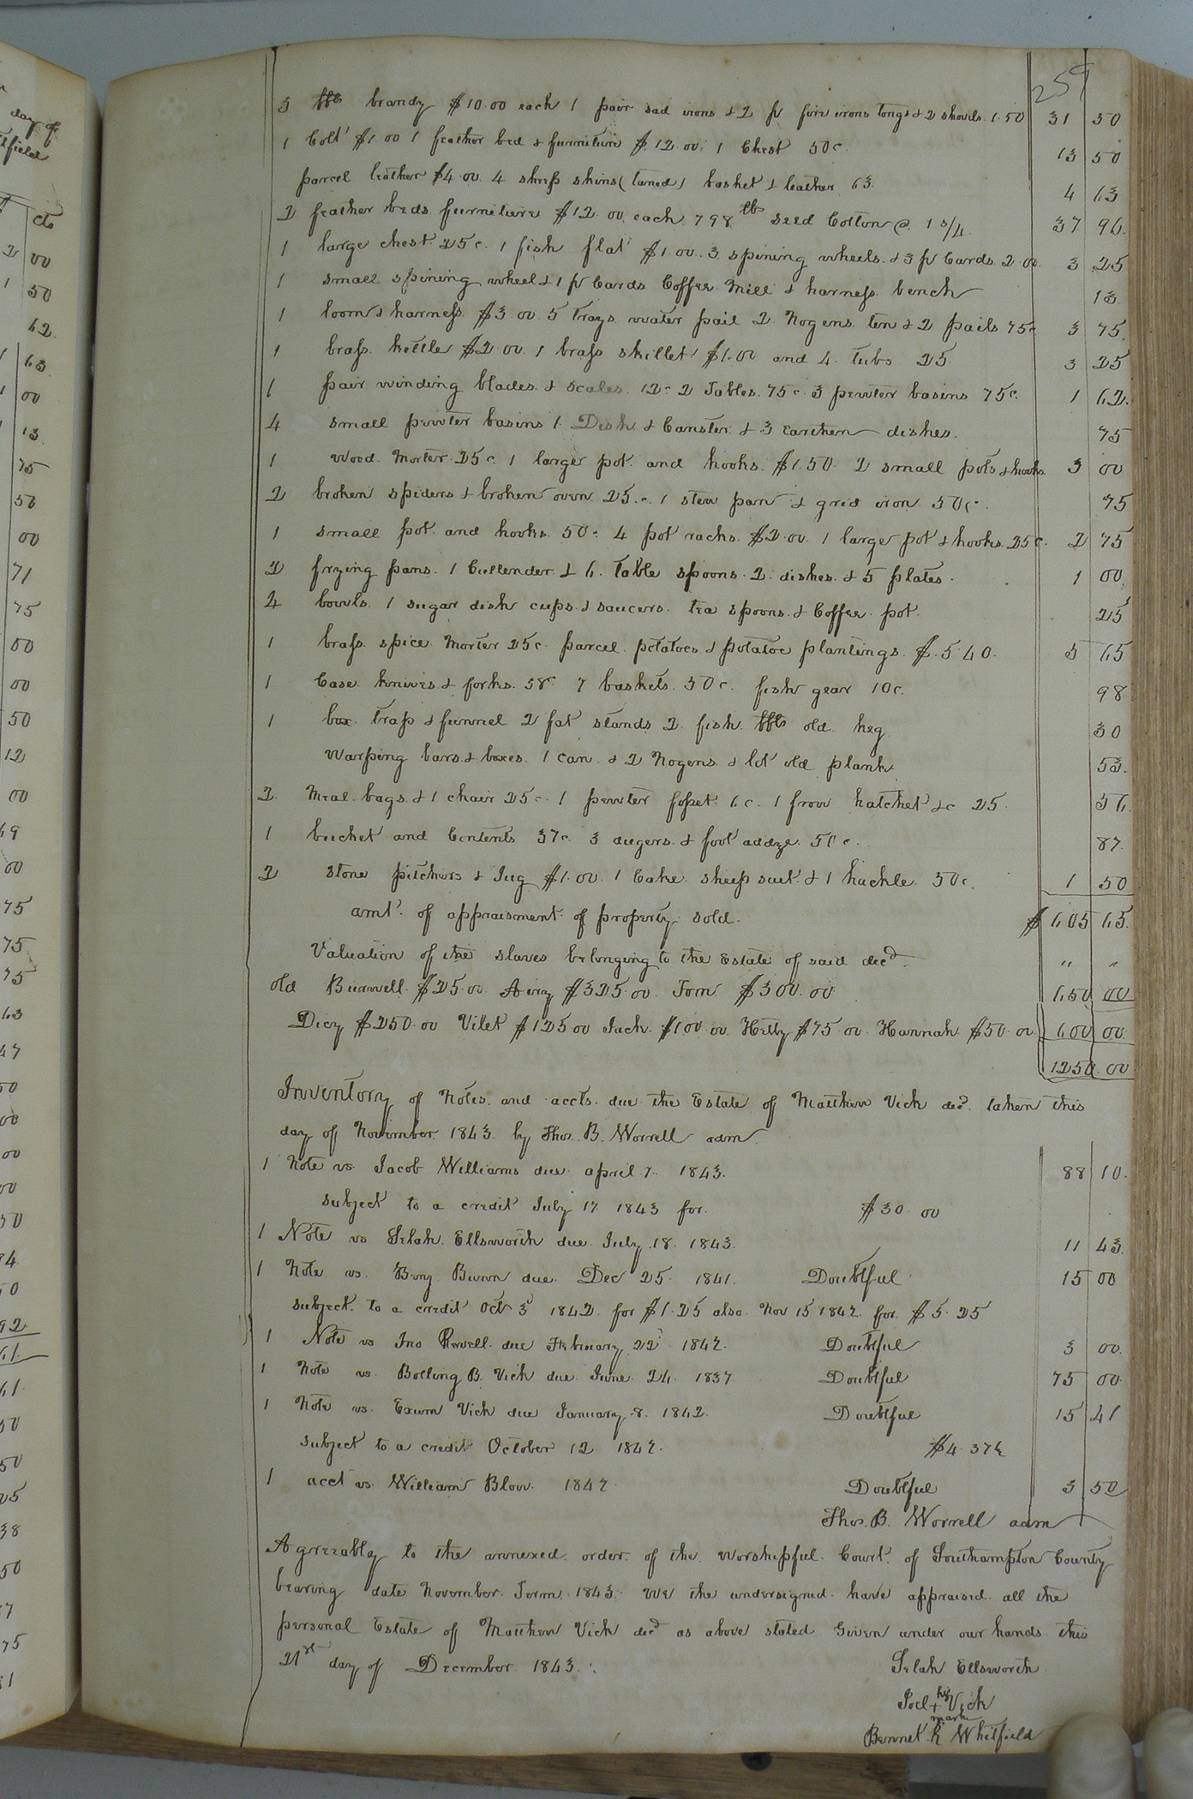 259
3 bbls brandy $10.00 each 1 pair sad irons & 2 pr fire irons tongs & 2 shovels 1.50 31 50
1 Colt $1.00 1 feather bed & furniture $12.00. 1 Chest 50c. 13 50
parcel leather $4.00. 4 sheep skins (taned) basket & leather 63. 4 63
2 feather beds furniture $12.00 each 798 lb seed Cotton @ 1 3/4. 37 96.
1 large chest 25c. 1 fish flat $1.00. 3 spining wheels & 3 pr Cards 2.00. 3 25
1 small spining wheel & 1 pr Cards Coffee Mill & harness bench 13
1 loom & harness $3 00. 5 trays water pail 2 Nogens ten & 2 pails 75c 3 75
1 brass kettle $2.00. 1 brass skillet $1.00 and 4 tubs 25 3 25
1 pair winding blades & scales 12c 2 Tables 75c 3 pewter basins 75c. 1 62.
4 small pewter basins 1 Dish & Canster & 3 earthen dishes. 75
1 wood Morter 25c 1 large pot and hooks $1.50 2 small pots & hooks 3 00
2 broken spiders & broken oven 25.c. 1 stew pan & grid iron 50c. 75
1 small pot and hooks 50c 4 pot racks $2.00. 1 large pot & hooks 25c. 2 75
2 frying pans 1 Cullender & 6 table spoons 2 dishes & 5 plates. 1 00
4 bowls 1 sugar dish cups & saucers tea spoons & Coffee pot. 25
1 brass spice Morter 25c parcel potatoes & potatoe plantings $5.40. 5 65
1 Case knives & forks 58c 7 baskets 30c. fish gear 10c. 98
1 box traps & funnel 2 fat stands 2 fish bbls old keg 30
Warping bars & boxes 1 can & 2 Nogens & lot old plank 53.
2 Meal bags & 1 chair 25c. 1 pewter fosset 6c. 1 frow hatchet &c 25. 56
1 bucket and Contents 37c 3 augers & foot addze 50c. 87.
2 stone pitchers & Jug $1.00 1 Cake sheep suet & 1 hackle 50c. 1 50
amt. of appraisment of property sold. $ 605 65.
Valuation of the slaves belonging to the Estate of said decd. " "
old Burwell $25.00 Avey $325.00 Tom $300.00 650 00
Dicy $250.00 Vilet $125.00 Jack $100.00 Hetty $75 00 Hannah $50 00 600 00.
1250.00
Inventory of Notes and accts due the Estate of Matthew Vick decd. taken this
day of November 1843 by Thos. B. Worrell adm
1 Note vs Jacob Williams due april 7. 1843. 88 10.
subject to a credit July 17 1843 for. $30.00
1 Note vs Selah Ellsworth due July 18 1843. 11 43.
1 Note vs. Benj Bunn due Dec 25. 1841. Doubtful 15 00
subject to a credit Oct 3d 1842 for $1.25 also Nov 15 1842 for $5.25
1 Note vs Jno Powell due February 22d 1842. Doubtful 3 00.
1 Note vs. Bolling B. Vick due June 24 1837. Doubtful 75 00.
1 Note vs. Exum Vick due January 8. 1842. Doubtful 15 41
subject to a credit October 12 1842. $4.37½
1 acct vs William Blow. 1842 Doubtful 3 50
Thos. B. Worrell adm
Agreeably to the annexed order of the worshipful Court of Southampton County
bearing date November Term 1843. We the undersigned have appraised all the
personal Estate of Matthew Vick decd as above stated Given under our hands this
21st day of December 1843.
Selah Ellsworth
Joel his + mark Vick
Bennet R Whitfield